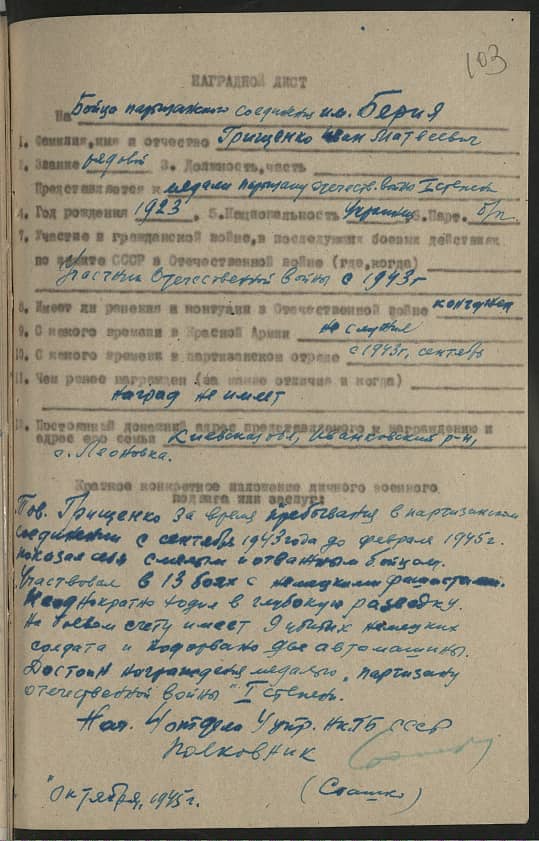 103
НАГРАДНОЙ ЛИСТ
На Бойца партизанского соединения им. Берия
1. Фамилия, имя и отчество Грищенко Иван Матвеевич
2. Звание рядовой 3. Должность, часть
Представляется к медали партизану отечеств. войны I степени
4. Год рождения 1923. 5. Национальность украинец 6. Парт. б/п
7. Участие в гражданской войне, в последующих боевых действиях
по защите СССР в Отечественной войне (где, когда)
Участник Отечественной войны с 1943г
8. Имеет ли ранения и контузии в Отечественной войне контужен
9. С какого времени в Красной Армии не служил
10. С какого времени в партизанском отряде с 1943г, сентябрь
11. Чем ранее награжден (за какие отличия и когда)
наград не имеет
12. Постоянный домашний адрес представляемого к награждению и
адрес его семьи Киевская обл, Иванковский р-н,
с. Леоновка.
Краткое конкретное изложение личного военного
подвига или заслуг:
Тов. Грищенко за время пребывания в партизанском
соединении с сентября 1943 года до февраля 1945г.
показал себя смелым и отважным бойцом.
Участвовал в 13 боях с немецкими фашистами.
Неоднократно ходил в глубокую разведку.
На боевом счету имеет 9 убитых немецких
солдата и подорвано две автомашины.
Достоин награждения медалью "партизану
отечественной войны" I степени.
Нач. 4 отдела 4 упр. НКГБ СССР
Полковник
(Сташко)
" октября, 1945г.